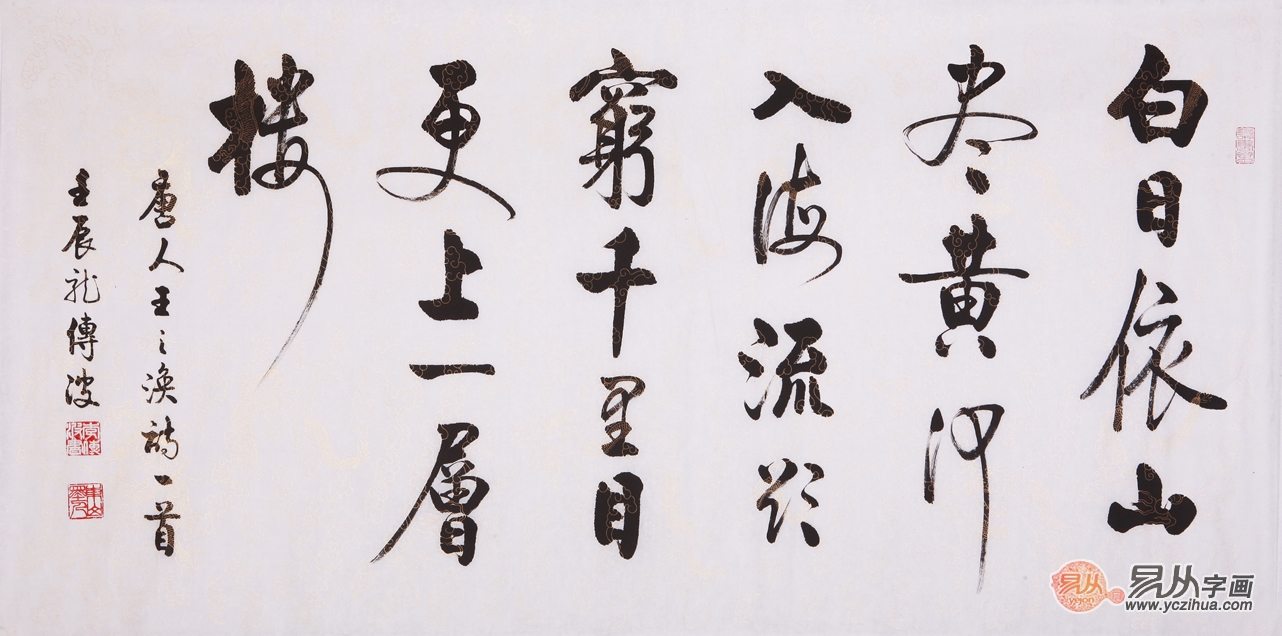 白日依山
尽黄河
入海流欲
窮千里目
更上一層
楼
唐人王之渙詩一首
壬辰龙傳波
易从字画
www.yczihua.com